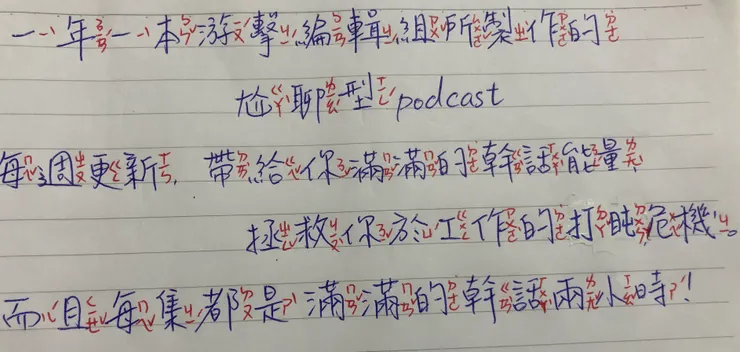 一年一本游擊編輯組所製作的
尬聊型 podcast
每週更新，帶給你滿滿的幹話能量，
拯救你於工作的打盹危機。
而且每集都是滿滿的幹話兩小時！